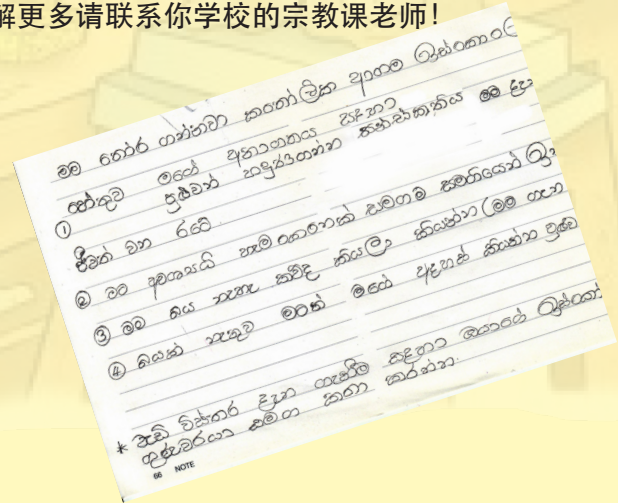 解更多请联系你学校的宗教课老师！
මම තෝර ගන්නවා කතෝලික ආගම
හේතුව මගේ අනාගතය සඳහා
① පුළුවන් හඳුරගන්න සංස්කෘතිය මම
ජීවත් වන රටේ.
② මට අවශ්‍යයි හැම කෙනෙක් සමගම සමගියෙන්
③ මම බය නැහැ කව්ද කියලා කියන්න (මම ගැන
④ බයක් නැතුව මටත් මගේ අදහස් කියන්න
* වැඩි විස්තර දැන ගැනීම සඳහා ඔයාගේ
ගුරුවරයා සමග කතා කරන්න.
66 NOTE